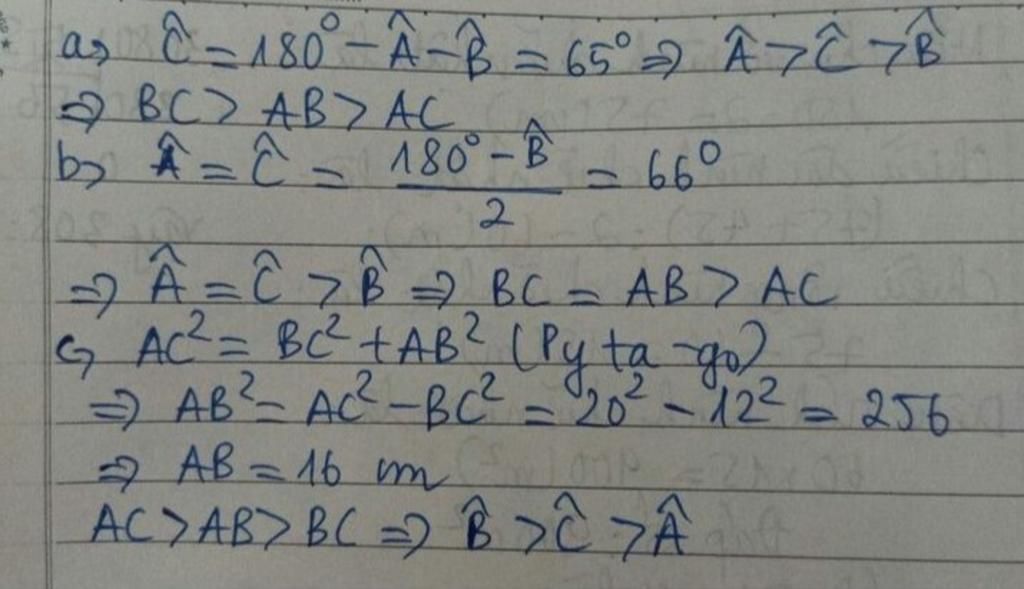 a, Ĉ = 180° - Â - B̂ = 65° => Â > Ĉ > B̂
=> BC > AB > AC
b, Â = Ĉ = (180° - B̂)/2 = 66°
=> Â = Ĉ > B̂ => BC = AB > AC
c, AC² = BC² + AB² (Py ta -go)
=> AB² = AC² - BC² = 20² - 12² = 256
=> AB = 16 cm
AC > AB > BC => B̂ > Ĉ > Â